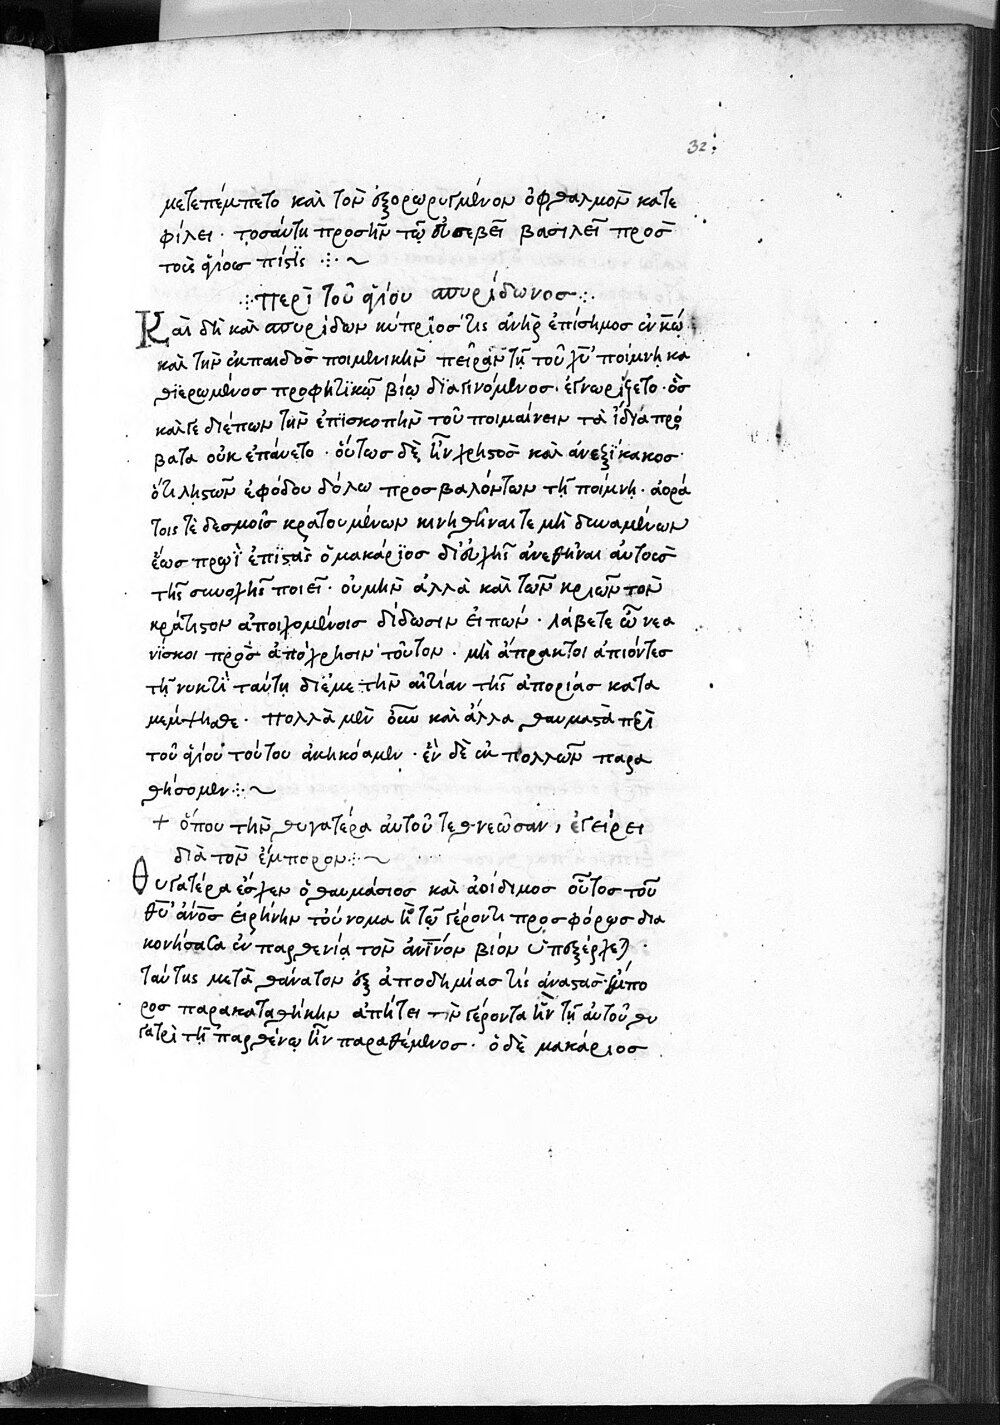 32
μετεπέμπετο καὶ τὸν ἐξορωρυγμένον ὀφθαλμὸν κατε
φίλει · τοσαύτη προσῆν τῷ εὐσεβεῖ βασιλεῖ πρὸς
τοὺς ἁγίους πίστις
Περὶ τοῦ ἁγίου σπυρίδωνος
Καὶ δὴ καὶ σπυρίδων κύπριος τίς ἀνὴρ ἐπίσημος
καὶ τὴν ἐκπαιδὸς ποιμενικὴν πεῖραν τῇ τοῦ χῦ ποίμνη κα
θιερωμένος προφητικῷ βίῳ διαγινόμενος · ἐγνωρίζετο · ὃς
καὶ γε διέπων τὴν ἐπισκοπὴν τοῦ ποιμαίνειν τὰ ἴδια πρό
βατα οὐκ ἐπαύετο · οὕτως δὲ ἦν χρηστὸς καὶ ἀνεξίκακος ·
ὅτι ληστῶν ἐφόδου δόλω προσβαλόντων τῇ ποίμνη · ἀορά
τοις τὲ δεσμοῖς κρατουμένων κινηθῆναι τε μὴ δυναμένων
ἕως πρωῒ ἐπιστὰς ὁ μακάριος δι εὐχῆς ἀνεθῆναι αὐτοὺς
τῆς συνοχῆς ποιεῖ · οὐμὴν ἀλλὰ καὶ τῶν κριῶν τὸν
κράτιστον ἀποιχομένοις δίδωσιν εἰπών · λάβετε ὦ νεα
νίσκοι πρὸς ἀπόχρησιν τοῦτον · μὴ ἄπρακτοι ἀπιόντες
τῇ νυκτὶ ταύτη διέμε τὴν αἰτίαν τῆς ἀπορίας κατα
μεμψησθε · πολλὰ μὲν οὖν καὶ ἄλλα θαυμαστὰ περὶ
τοῦ ἁγίου τούτου ἀκηκόαμεν · ἓν δὲ ἐκ πολλῶν παρα
θήσομεν
+ ὅπου τὴν θυγατέρα αὐτοῦ τεθνεῶσαν, ἐγείρει
διὰ τὸν ἔμπορον
Θυγατέρα ἔσχεν ὁ θαυμάσιος καὶ ἀοίδιμος οὗτος τοῦ
θῦ ἀνος εἰρήνην τοὔνομα ἣ τῷ γέροντι προσφόρως δια
κονήσασα ἐν παρθενία τὸν ἀνινον βίον ὑπεξέρχεται ·
ταύτης μετὰ θάνατον ἐξ ἀποδημίας τίς ἀναστὰς ἔμπο
ρος παρακαταθήκην ἀπήτει τὸν γέροντα ἣν τῇ αὐτοῦ θυ
γατρὶ τῇ παρθένῳ ἦν παραθέμενος · ὁ δὲ μακάριος